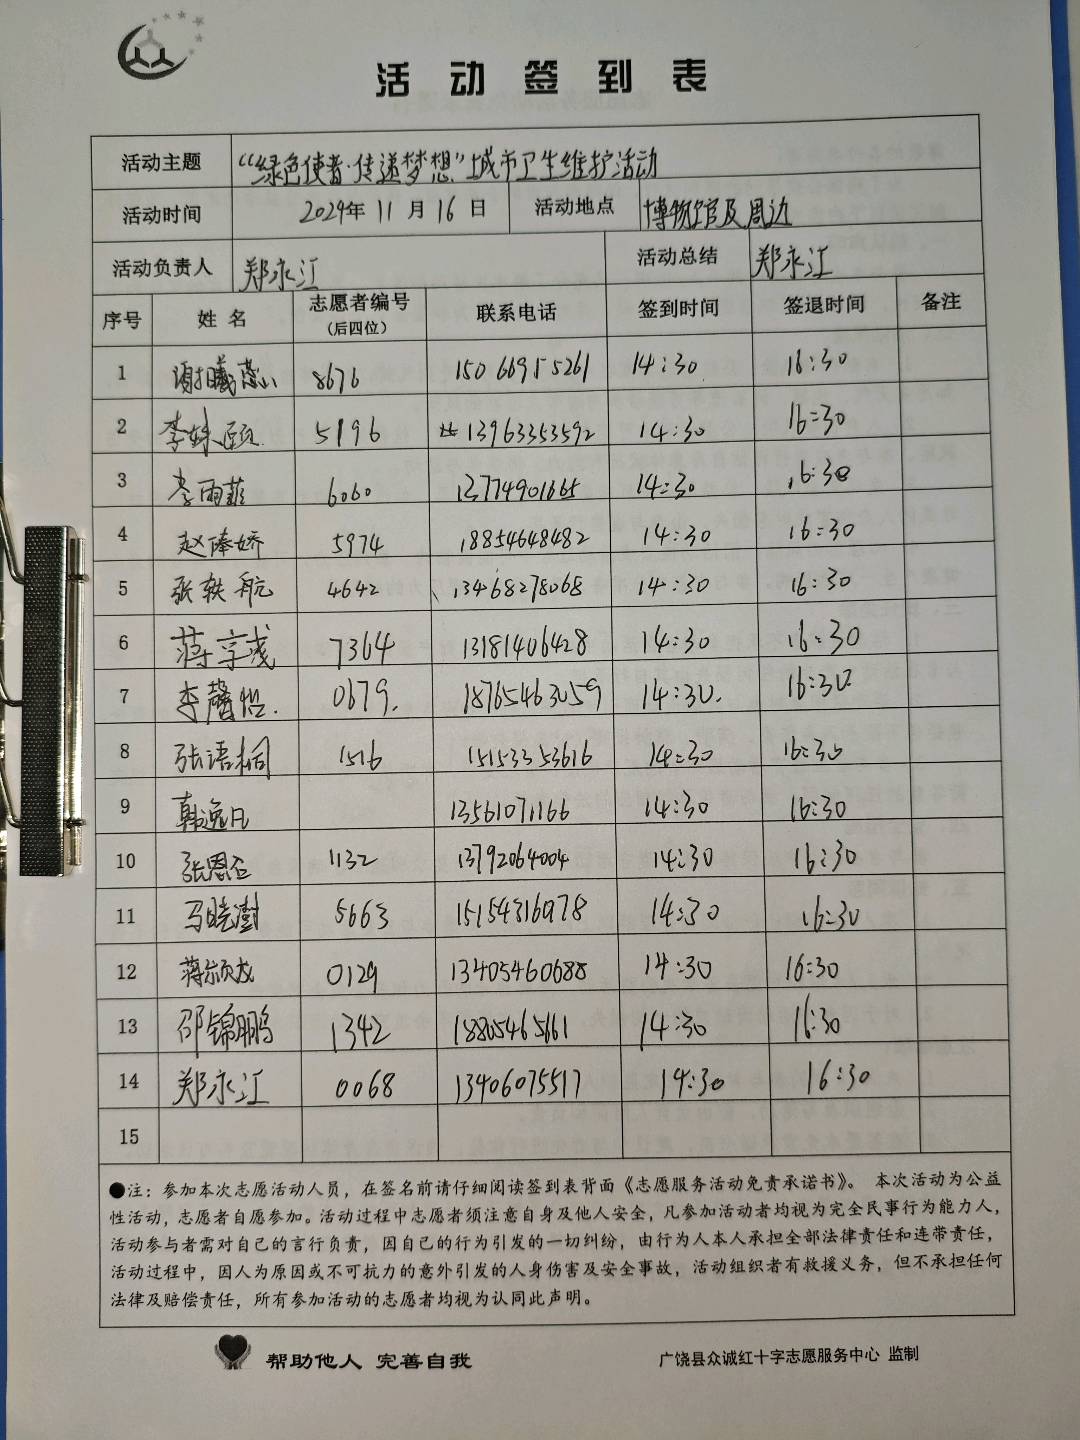 活动签到表
活动主题 “绿色使者·传递梦想”城市卫生维护活动
活动时间 2024年 11 月 16 日 活动地点 博物馆及周边
活动负责人 郑永江 活动总结 郑永江
序号 姓 名 志愿者编号（后四位） 联系电话 签到时间 签退时间 备注
1 8676 15066915261 14:30 16:30
2 李姝颐 5196 13963353592 14:30 16:30
3 李雨菲 6060 13774901665 14:30 16:30
4 赵俸娇 5974 18854648482 14:30 16:30
5 张轶航 4642 13468278068 14:30 16:30
6 蒋享彧 7364 13181406428 14:30 16:30
7 李馨怡. 0679. 18765463059 14:30. 16:30.
8 张语桐 1516 15153353616 14:30 16:30
9 韩逸凡 13561071166 14:30 16:30
10 张恩召 1132 13792064004 14:30 16:30
11 马晓澍 5663 15154316978 14:30 16:30
12 蒋颜龙 0129 13405460688 14:30 16:30
13 邵锦鹏 1342 18805465661 14:30 16:30
14 郑永江 0068 13406075517 14:30 16:30
15
●注：参加本次志愿活动人员，在签名前请仔细阅读签到表背面《志愿服务活动免责承诺书》。 本次活动为公益
性活动，志愿者自愿参加。活动过程中志愿者须注意自身及他人安全，凡参加活动者均视为完全民事行为能力人，
活动参与者需对自己的言行负责，因自己的行为引发的一切纠纷，由行为人本人承担全部法律责任和连带责任，
活动过程中，因人为原因或不可抗力的意外引发的人身伤害及安全事故，活动组织者有救援义务，但不承担任何
法律及赔偿责任，所有参加活动的志愿者均视为认同此声明。
帮助他人 完善自我 广饶县众诚红十字志愿服务中心 监制